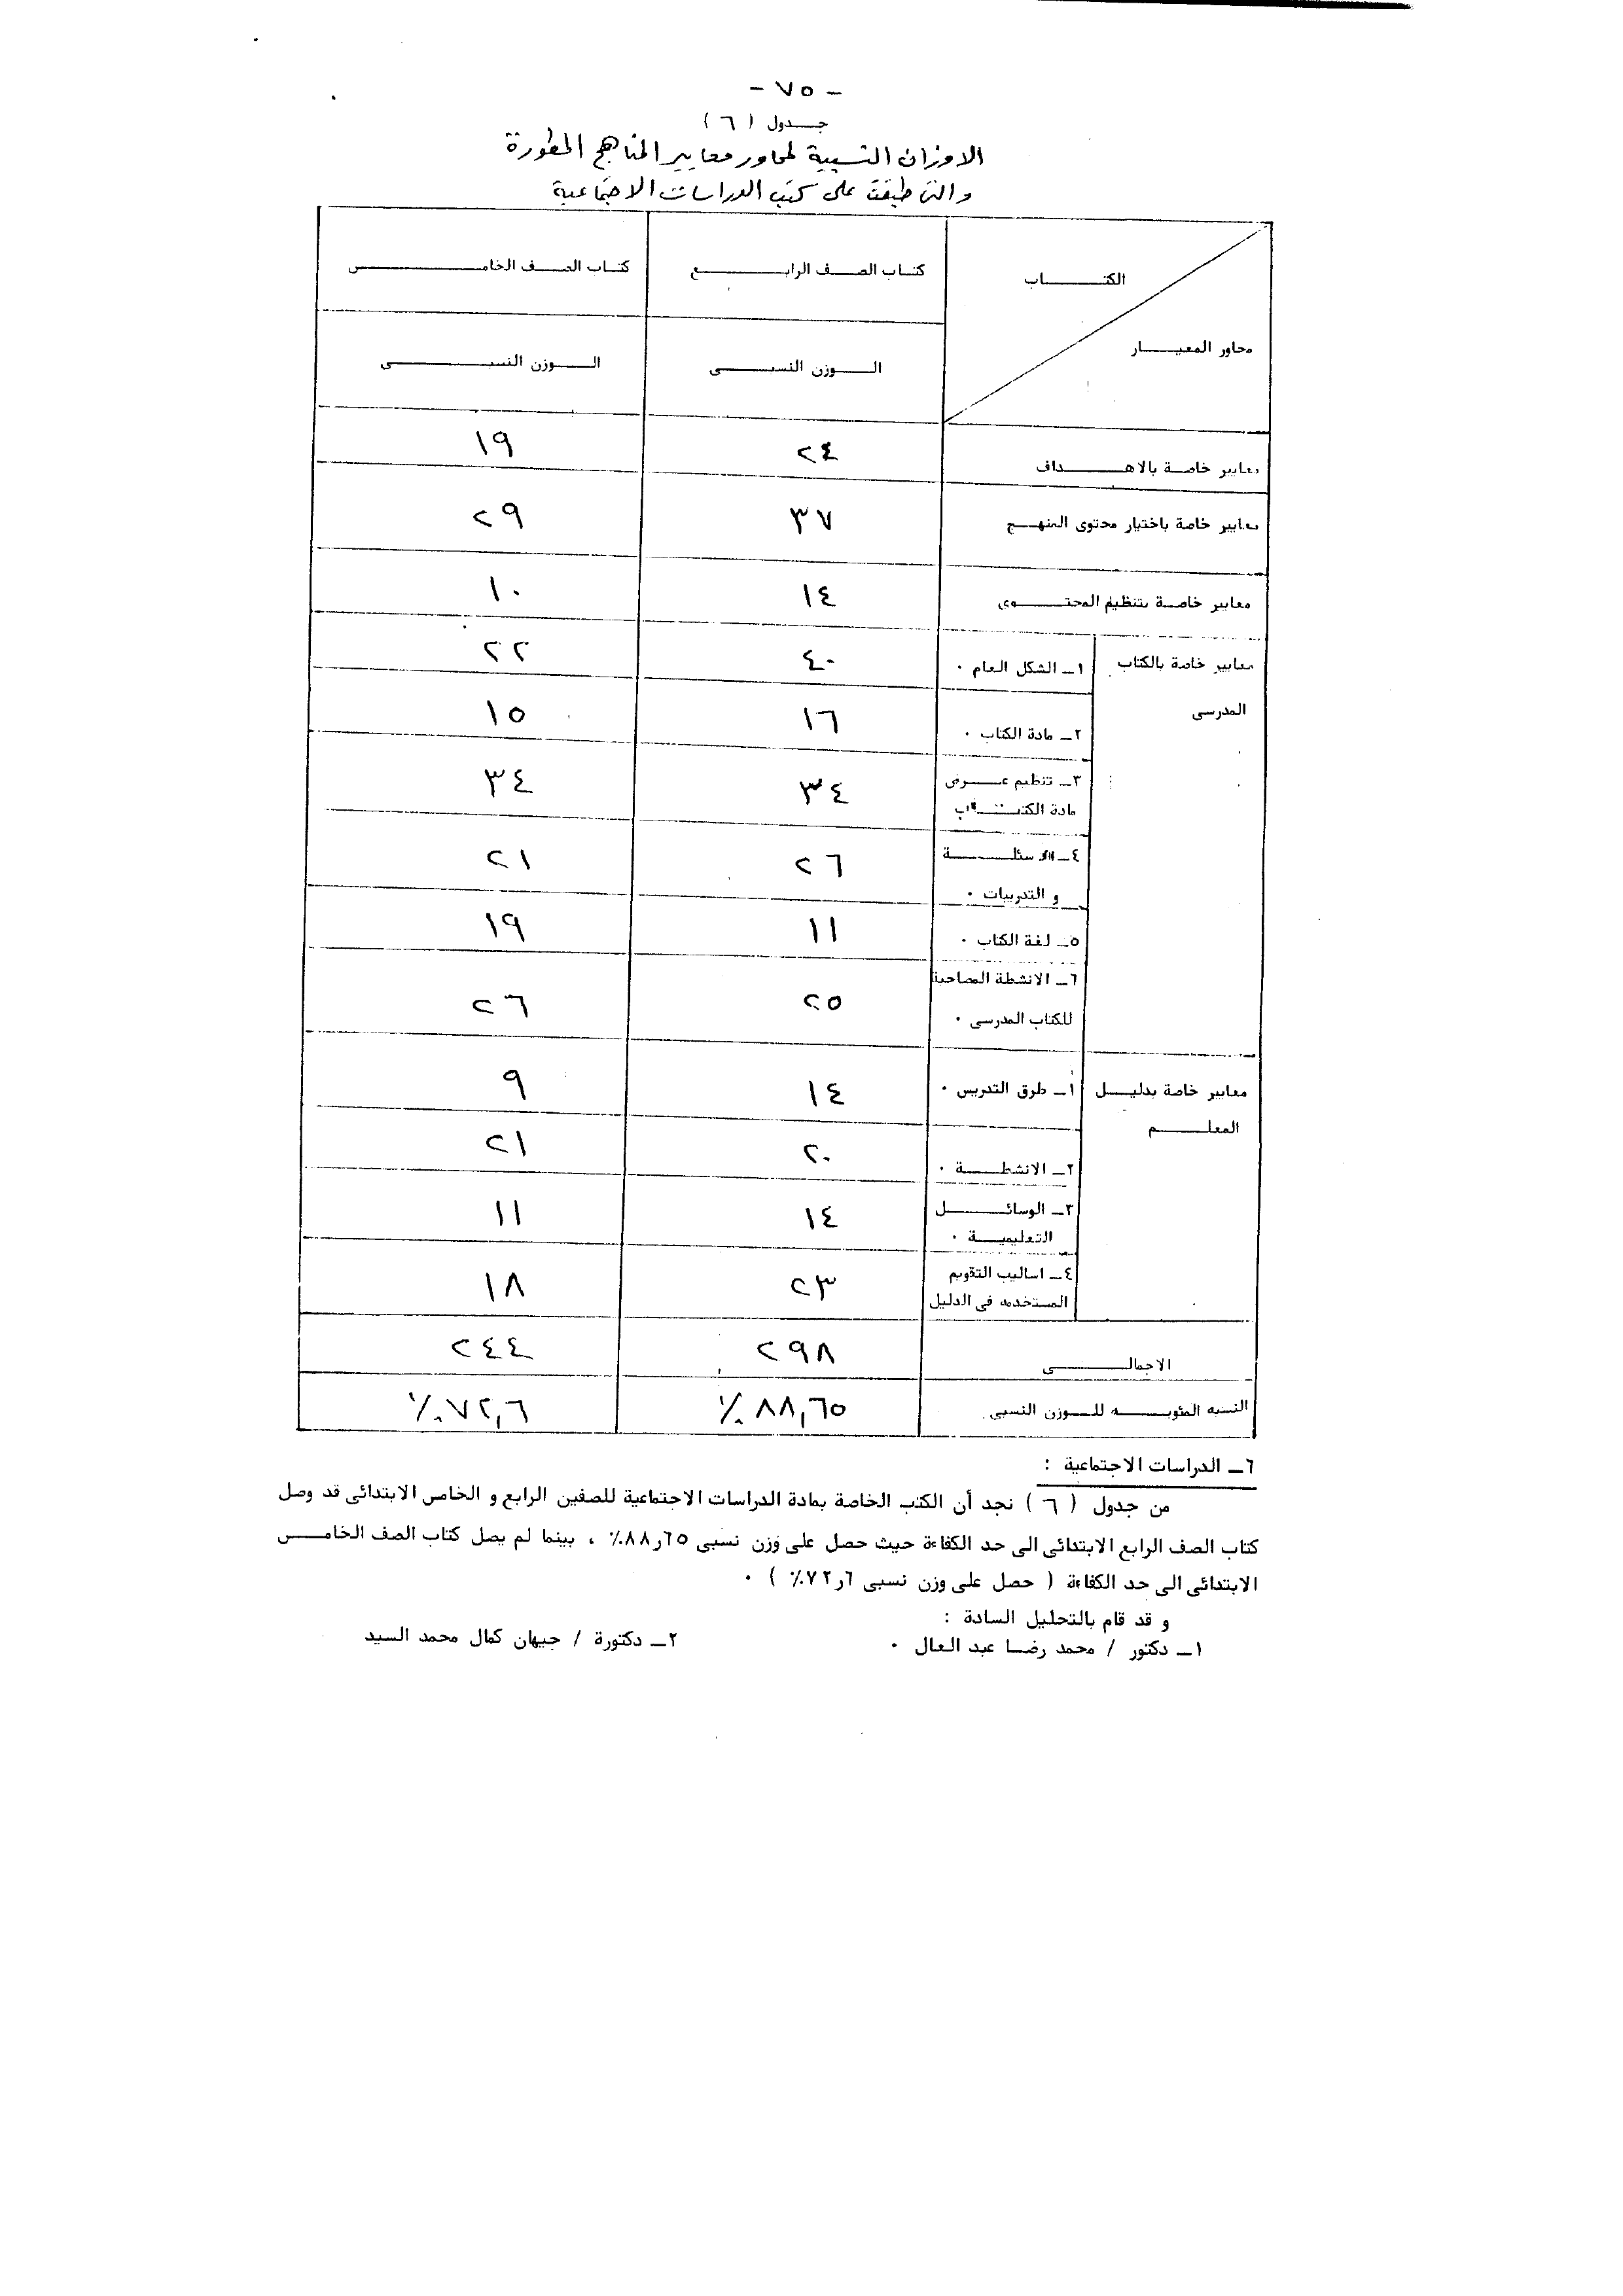 - ٧٥ -
جدول ( ٦ )
الاوزان النسبية لمحاور معايير المناهج المطورة
والتى طبقت على كتب الدراسات الاجتماعية
الكتاب
كتاب الصف الرابع
كتاب الصف الخامس
محاور المعيار
الوزن النسبى
الوزن النسبى
معايير خاصة بالاهداف ٢٤ ١٩
معايير خاصة باختيار محتوى المنهج ٣٧ ٢٩
معايير خاصة بتنظيم المحتوى ١٤ ١٠
معايير خاصة بالكتاب المدرسى
١ـ الشكل العام . ٤٠ ٢٢
٢ـ مادة الكتاب . ١٦ ١٥
٣ـ تنظيم عرض مادة الكتاب ٣٤ ٣٤
٤ـ الاسئلة و التدريبات . ٢٦ ٢١
٥ـ لغة الكتاب . ١١ ١٩
٦ـ الانشطة المصاحبة للكتاب المدرسى . ٢٥ ٢٦
معايير خاصة بدليل المعلم
١ـ طرق التدريس . ١٤ ٩
٢ـ الانشطة . ٢٠ ٢١
٣ـ الوسائل التعليمية . ١٤ ١١
٤ـ اساليب التقويم المستخدمه فى الدليل ٢٣ ١٨
الاجمالى ٢٩٨ ٢٤٤
النسبه المئويه للوزن النسبى ٨٨,٦٥٪ ٧٢,٦٪
٦ـ الدراسات الاجتماعية :
من جدول ( ٦ ) نجد أن الكتب الخاصة بمادة الدراسات الاجتماعية للصفين الرابع و الخامس الابتدائى قد وصل
كتاب الصف الرابع الابتدائى الى حد الكفاءة حيث حصل على وزن نسبى ٦٥ر٨٨٪ ، بينما لم يصل كتاب الصف الخامس
الابتدائى الى حد الكفاءة ( حصل على وزن نسبى ٦ر٧٢٪ ) .
و قد قام بالتحليل السادة :
١ـ دكتور / محمد رضا عبد العال . ٢ـ دكتورة / جيهان كمال محمد السيد